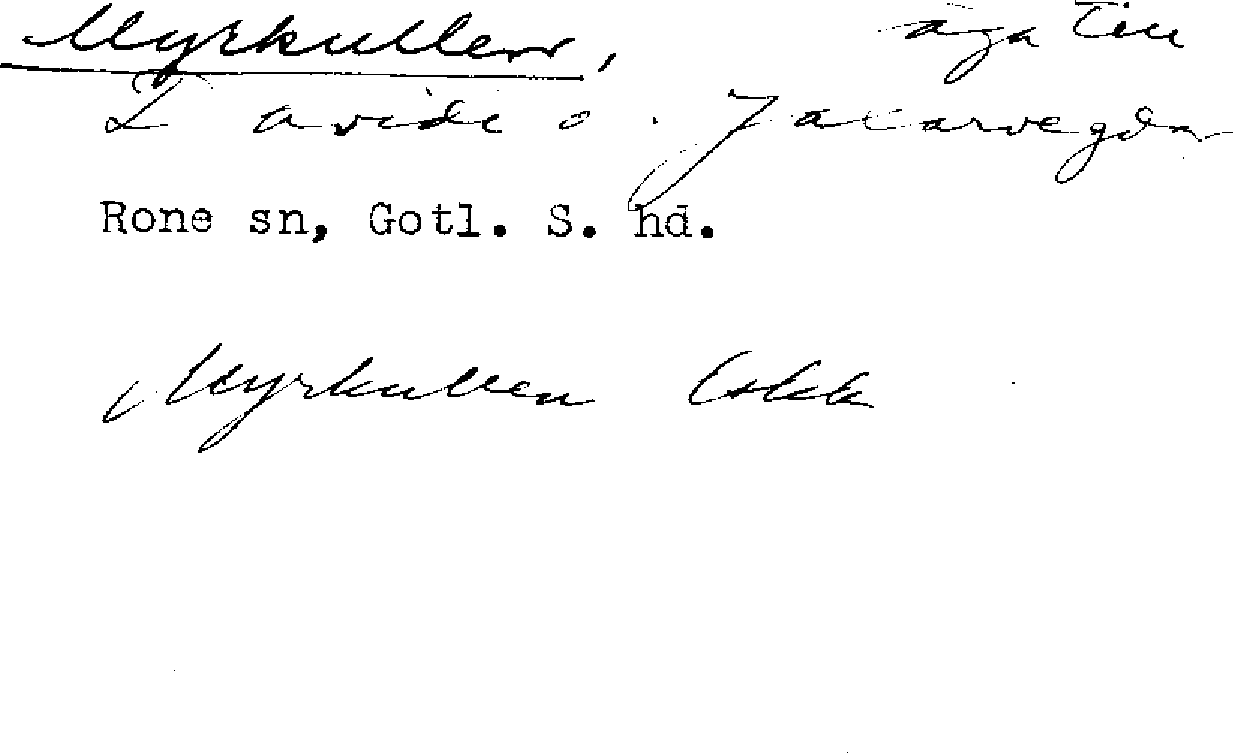 Myrkullen, äga till
Davide o. Jacarvegda
Rone sn, Gotl. S. hd.
Myrkullen Eskk